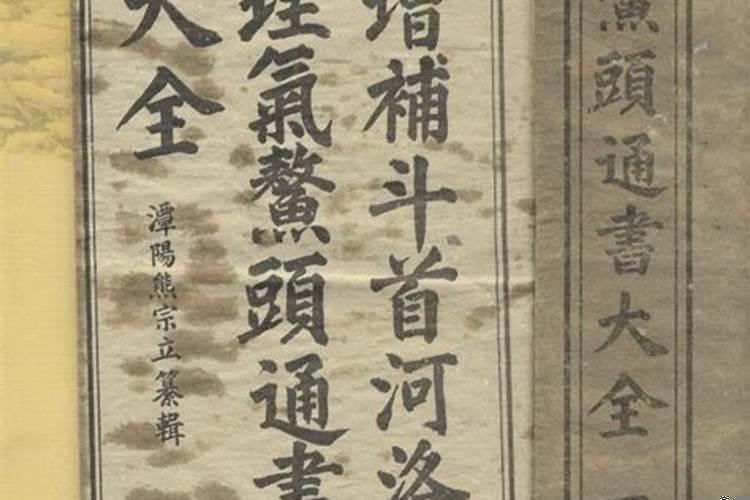 鰲頭通書大全
增補斗首河洛
理氣鰲頭通書
大全
潭陽熊宗立纂輯